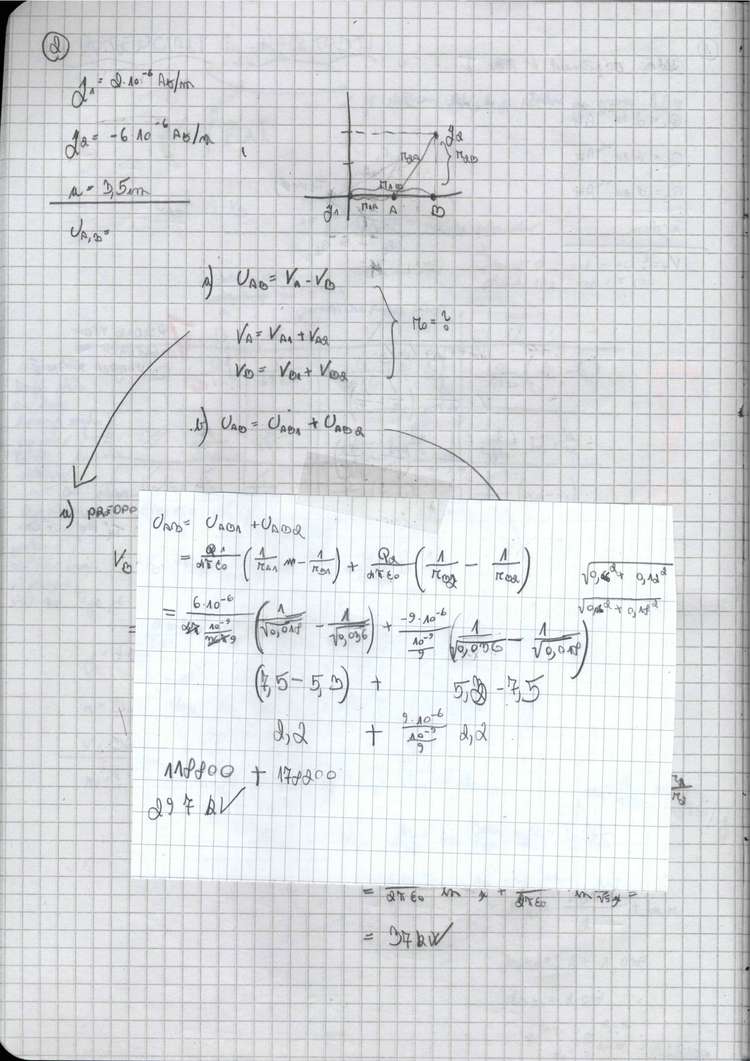 2
q₁ = 2·10⁻⁶ As/m
q₂ = -6·10⁻⁶ As/m
a = 3,5 m
U_A,B =
q₂
r₂A
r₂B
r₁B
q₁ r₁A A B
a) U_AB = V_A - V_B
V_A = V_A1 + V_A2
r₀ = ?
V_B = V_B1 + V_B2
b) U_AB = U_AB1 + U_AB2
a)
V_B
=
U_AB = U_AB1 + U_AB2
= Q₁/4πε₀ (1/r_A1 - 1/r_B1) + Q₂/4πε₀ (1/r_A2 - 1/r_B2)
= 6·10⁻⁶ / 10⁻⁹/9 (1/√0,018 - 1/√0,036) + -9·10⁻⁶ / 10⁻⁹/9 (1/√0,036 - 1/√0,018)
(7,5 - 5,3) + 5,3 - 7,5
2,2 + 9·10⁻⁶ / 10⁻⁹/9 2,2
118800 + 178200
297 kV
= 37 kV